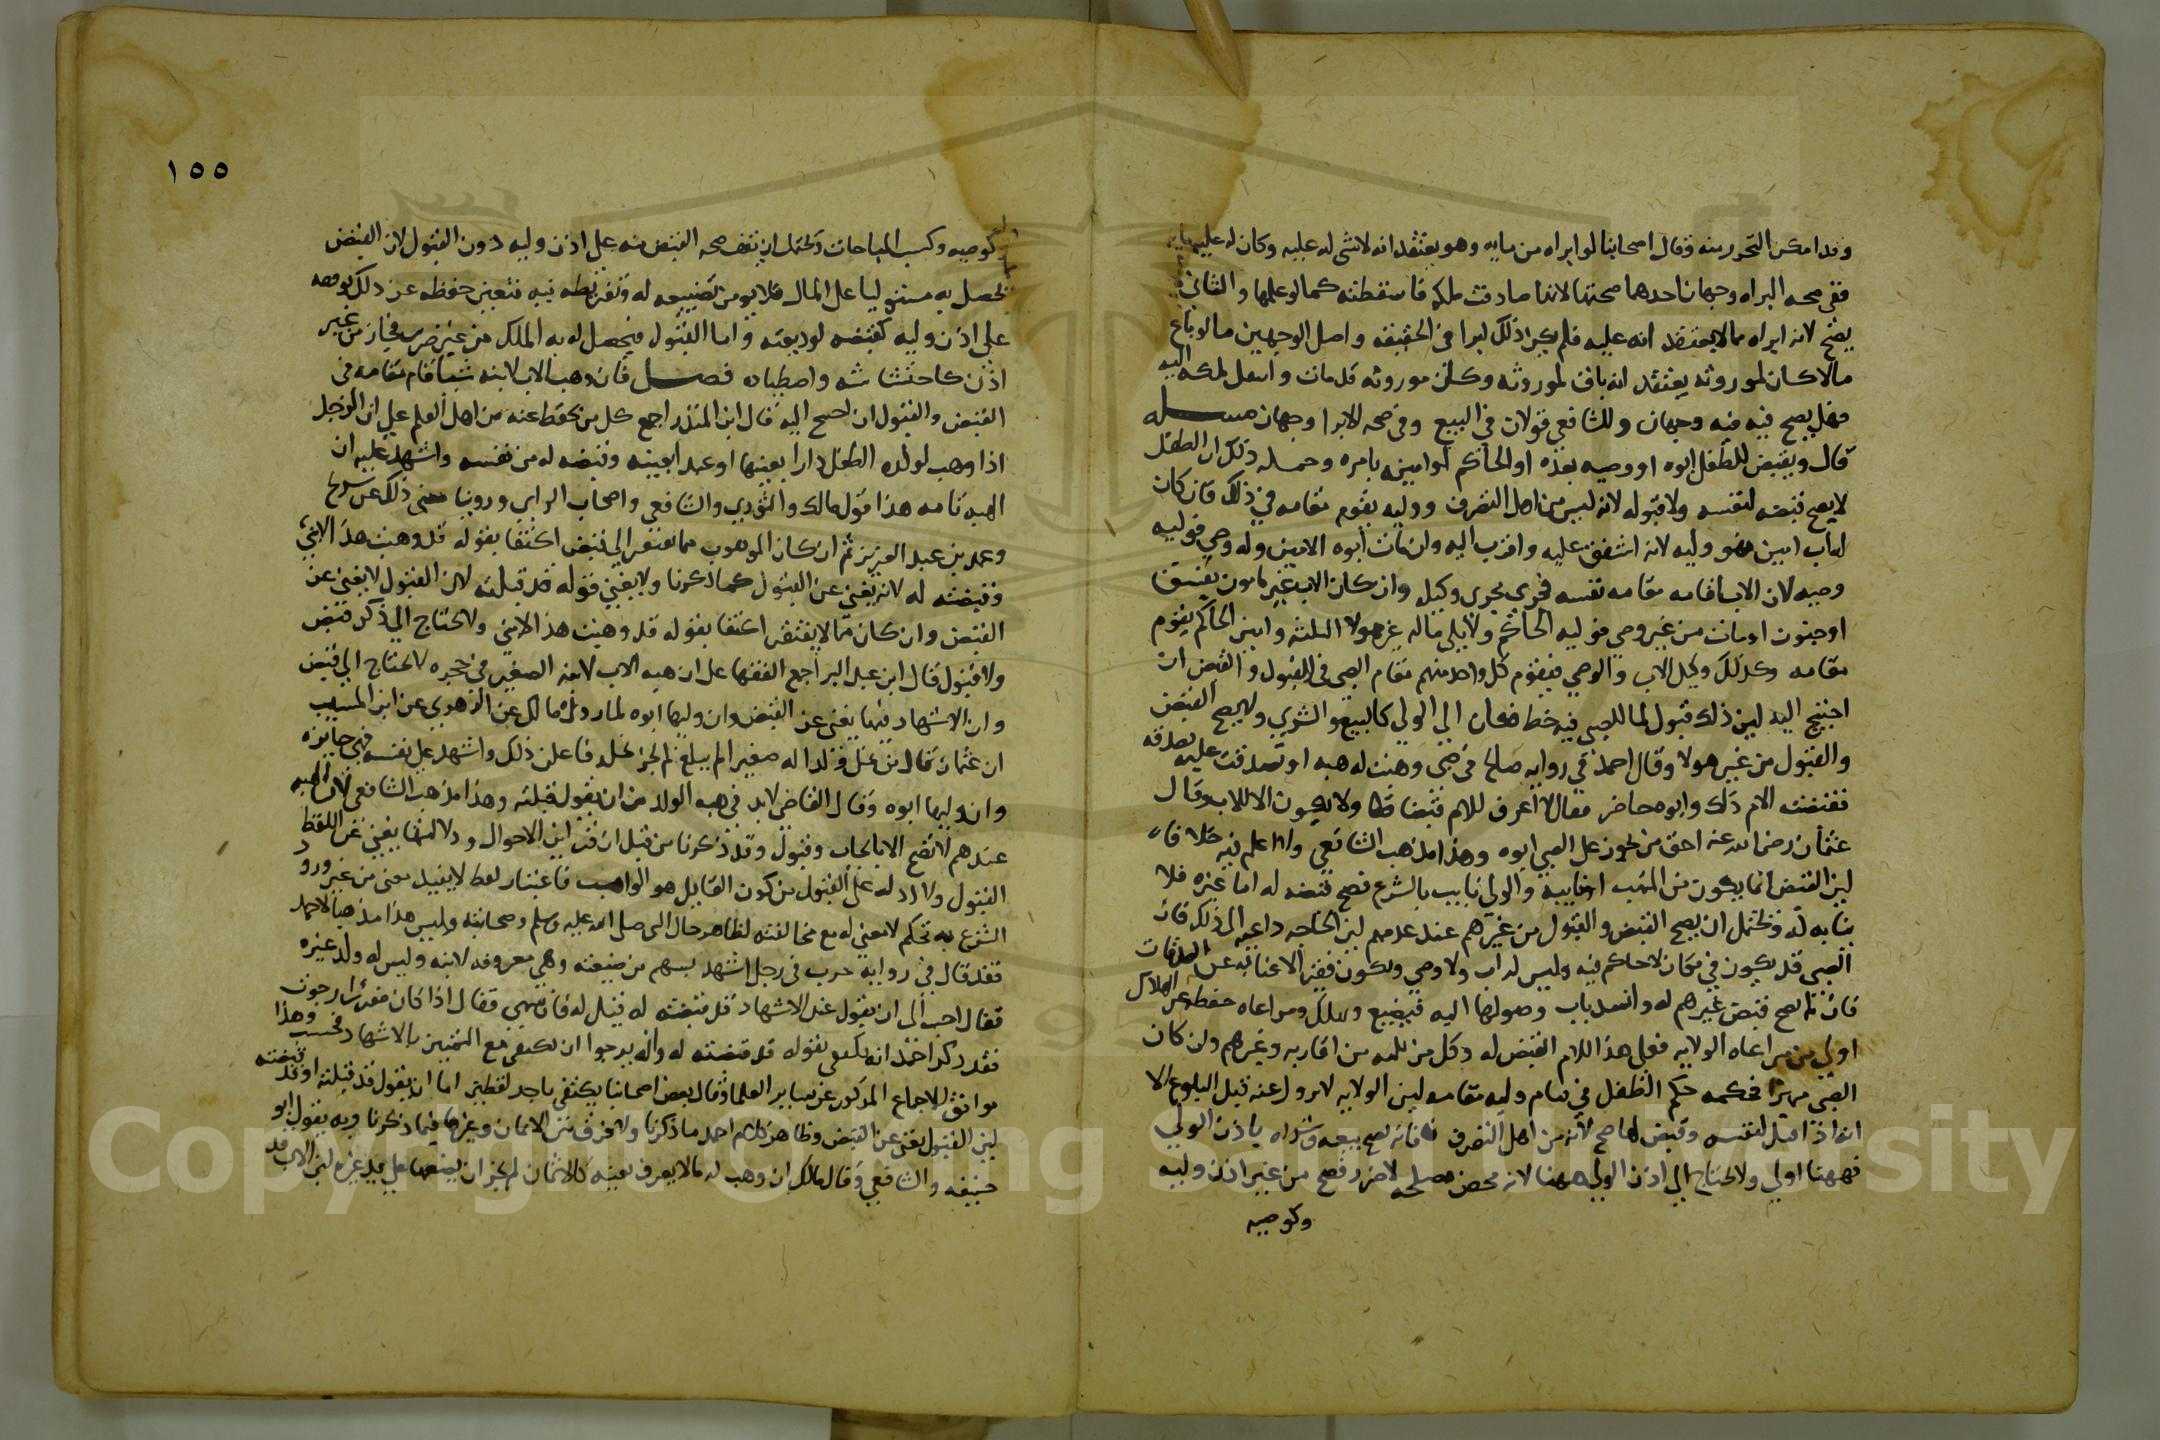 وقد امكن التحرز منه وقال اصحابنا لو ابراه من مايه وهو يعتقد انه لاشى له عليه وكان له عليه مايه
ففى صحه البراه وجهان احدهما صحتها لانها صادفت ملكه فاسقطته كما لو علمها والثانى لا
يصح لانه ابراه مما لا يعتقد انه عليه فلم يكن ذلك ابرا فى الحقيقه واصل الوجهين ما لو باع
مالا كان لموروثه يعتقد انه باق لموروثه وكان موروثه قد مات وانتقل ملكه اليه
فهل يصح فيه وجهان وللشافعي قولان في البيع وفى صحه الابرا وجهان مسله
قال ويقبض للطفل ابوه او وصيه بعده او الحاكم او امينه بامره وجمله ذلك ان الطفل
لا يصح قبضه لنفسه ولا قبوله لانه ليس من اهل التصرف ووليه يقوم مقامه في ذلك فان كان
له اب امين فهو وليه لانه اشفق عليه واقرب اليه وان مات ابوه الامين وله وصي فوليه
وصيه لان الاب اقامه مقامه نفسه فجرى مجرى وكيله وان كان الاب غير مامون بفسق
او جنون او مات من غير وصي فوليه الحاكم ولا يلي ماله غير هولا الثلثه وامين الحاكم يقوم
مقامه وكذلك وكيل الاب والوصي فيقوم كل واحد منهم مقام الصبى فى القبول والقبض ان
احتيج اليه لين ذلك قبول لما للصبى فيه حظ فكان الى الولي كالبيع والشرى ولا يصح القبض
والقبول من غير هولا وقال احمد في روايه صالح في صبى وهبت له هبه او تصدقت عليه بصدقه
فقبضت الام ذلك وابوه حاضر فقال لا اعرف للام قبضا ولا يكون الا للاب وقال
عثمان رضى الله عنه احق من يحوز على الصبي ابوه وهذا مذهب الشافعي ولا اعلم فيه خلافا
لين القبض انما يكون من المتهب او نايبه والولى نايب بالشرع فصح قبضه له اما غيره فلا
نيابه له ويحتمل ان يصح القبض والقبول من غيرهم عند عدمهم لين الحاجه داعيه الى ذلك فان
الصبي قد يكون في مكان لا حاكم فيه وليس له اب ولا وصي ويكون فقيرا لا غنا به عن الصدقات
فان لم يصح قبض غيرهم له وانسد باب وصولها اليه فيضيع ويهلك ومراعاه حفظه عن الهلاك
اولي من مراعاه الولايه فعلى هذا للام القبض له وكل من يليه من اقاربه وغيرهم وان كان
الصبي مميزا فحكمه حكم الطفل في قيام وليه مقامه لين الولايه لا تزول عنه قبل البلوغ الا
انه اذا قبل لنفسه وقبض لها صح لانه من اهل التصرف فانه يصح بيعه وشراه باذن الولي
فههنا اولى ولا يحتاج الى اذن الولي ههنا لانه محض مصلحه لا ضرر فصح من غير اذن وليه
وكوصيه
١٥٥
كوصيه وكسب المباحات ويحتمل ان تقف صحه القبض منه على اذن وليه دون القبول لان القبض
يحصل به مستوليا على المال فلا يومن تضييعه له وتفريطه فيه فتعين حفظه عن ذلك بوقفه
على اذن وليه كقبضه لوديعته واما القبول فيحصل له به الملك من غير ضرر فجاز من غير
اذن كاحتشاشه واصطياده فصل فان وهب الاب لابنه شيا قام مقامه فى
القبض والقبول ان احتيج اليه قال ابن المنذر اجمع كل من نحفظ عنه من اهل العلم على ان الرجل
اذا وهب لولده الطفل دارا بعينها او عبدا بعينه وقبضه له من نفسه واشهد عليه ان
الهبه تامه هذا قول مالك والثوري والشافعي واصحاب الراى وروينا معنى ذلك عن شريح
وعمر بن عبد العزيز ثم ان كان الموهوب مما يفتقر الى قبض اكتفا بقوله قد وهبت هذا لابنى
وقبضته له لانه يغنى عن القبول كما ذكرنا ولا يغني قوله قد قبلته لان القبول لا يغنى عن
القبض وان كان مما لا يفتقر اكتفا بقوله قد وهبت هذا لابنى ولا يحتاج الى ذكر قبض
ولا قبول قال ابن عبد البر اجمع الفقها على ان هبه الاب لابنه الصغير فى حجره لا تحتاج الى قبض
وان الاشهاد فيها يغنى عن القبض وان وليها ابوه لما روى مالك عن الزهري عن ابن المسيب
ان عثمان قال من نحل ولدا له صغيرا لم يبلغ ان يحوز نحله فاعلن ذلك واشهد على نفسه فهي جايزه
وان وليها ابوه وقال القاضى لابد فى هبه الولد من ان يقول قبلته وهذا مذهب الشافعى لان الهبه
عندهم لا تصح الا بايجاب وقبول وقد ذكرنا من قبل ان قراين الاحوال ودلالتها يغنى عن اللفظ
القبول ولا ادل على القبول من كون القابل هو الواهب فاعتبار لفظ لا يفيد معنى من غير ورود
الشرع به تحكم لا معنى له مع مخالفته لظاهر حال النبى صلى الله عليه وسلم وصحابته وليس هذا مذهبا لاحمد
فقد قال في روايه حرب فى رجل اشهد بسهم من ضيعته وهي معروفه لابنه وليس له ولد غيره
فقال احب الى ان يقول عند الاشهاد قد قبضته له قيل له فان سهى فقال اذا كان مفرزا رجوت
فقد ذكر احمد انه يكتفى بقوله قد قبضته له وانه يرجوا ان يكتفى مع التمييز بالاشهاد فحسب وهذا
موافق للاجماع المذكور عن ساير العلما وقال بعض اصحابنا يكتفى باحد لفظين اما ان يقول قد قبلته او قد قبضته
لين القبول يغنى عن القبض وظاهر كلام احمد ما ذكرنا ولا فرق بين الاثمان وغيرها فيما ذكرنا وبه يقول ابو
حنيفه والشافعي وقال مالك ان وهب له ما لا يعرف بعينه كالاثمان لم يجز ان يضعها على يد غيره لين الاب قد